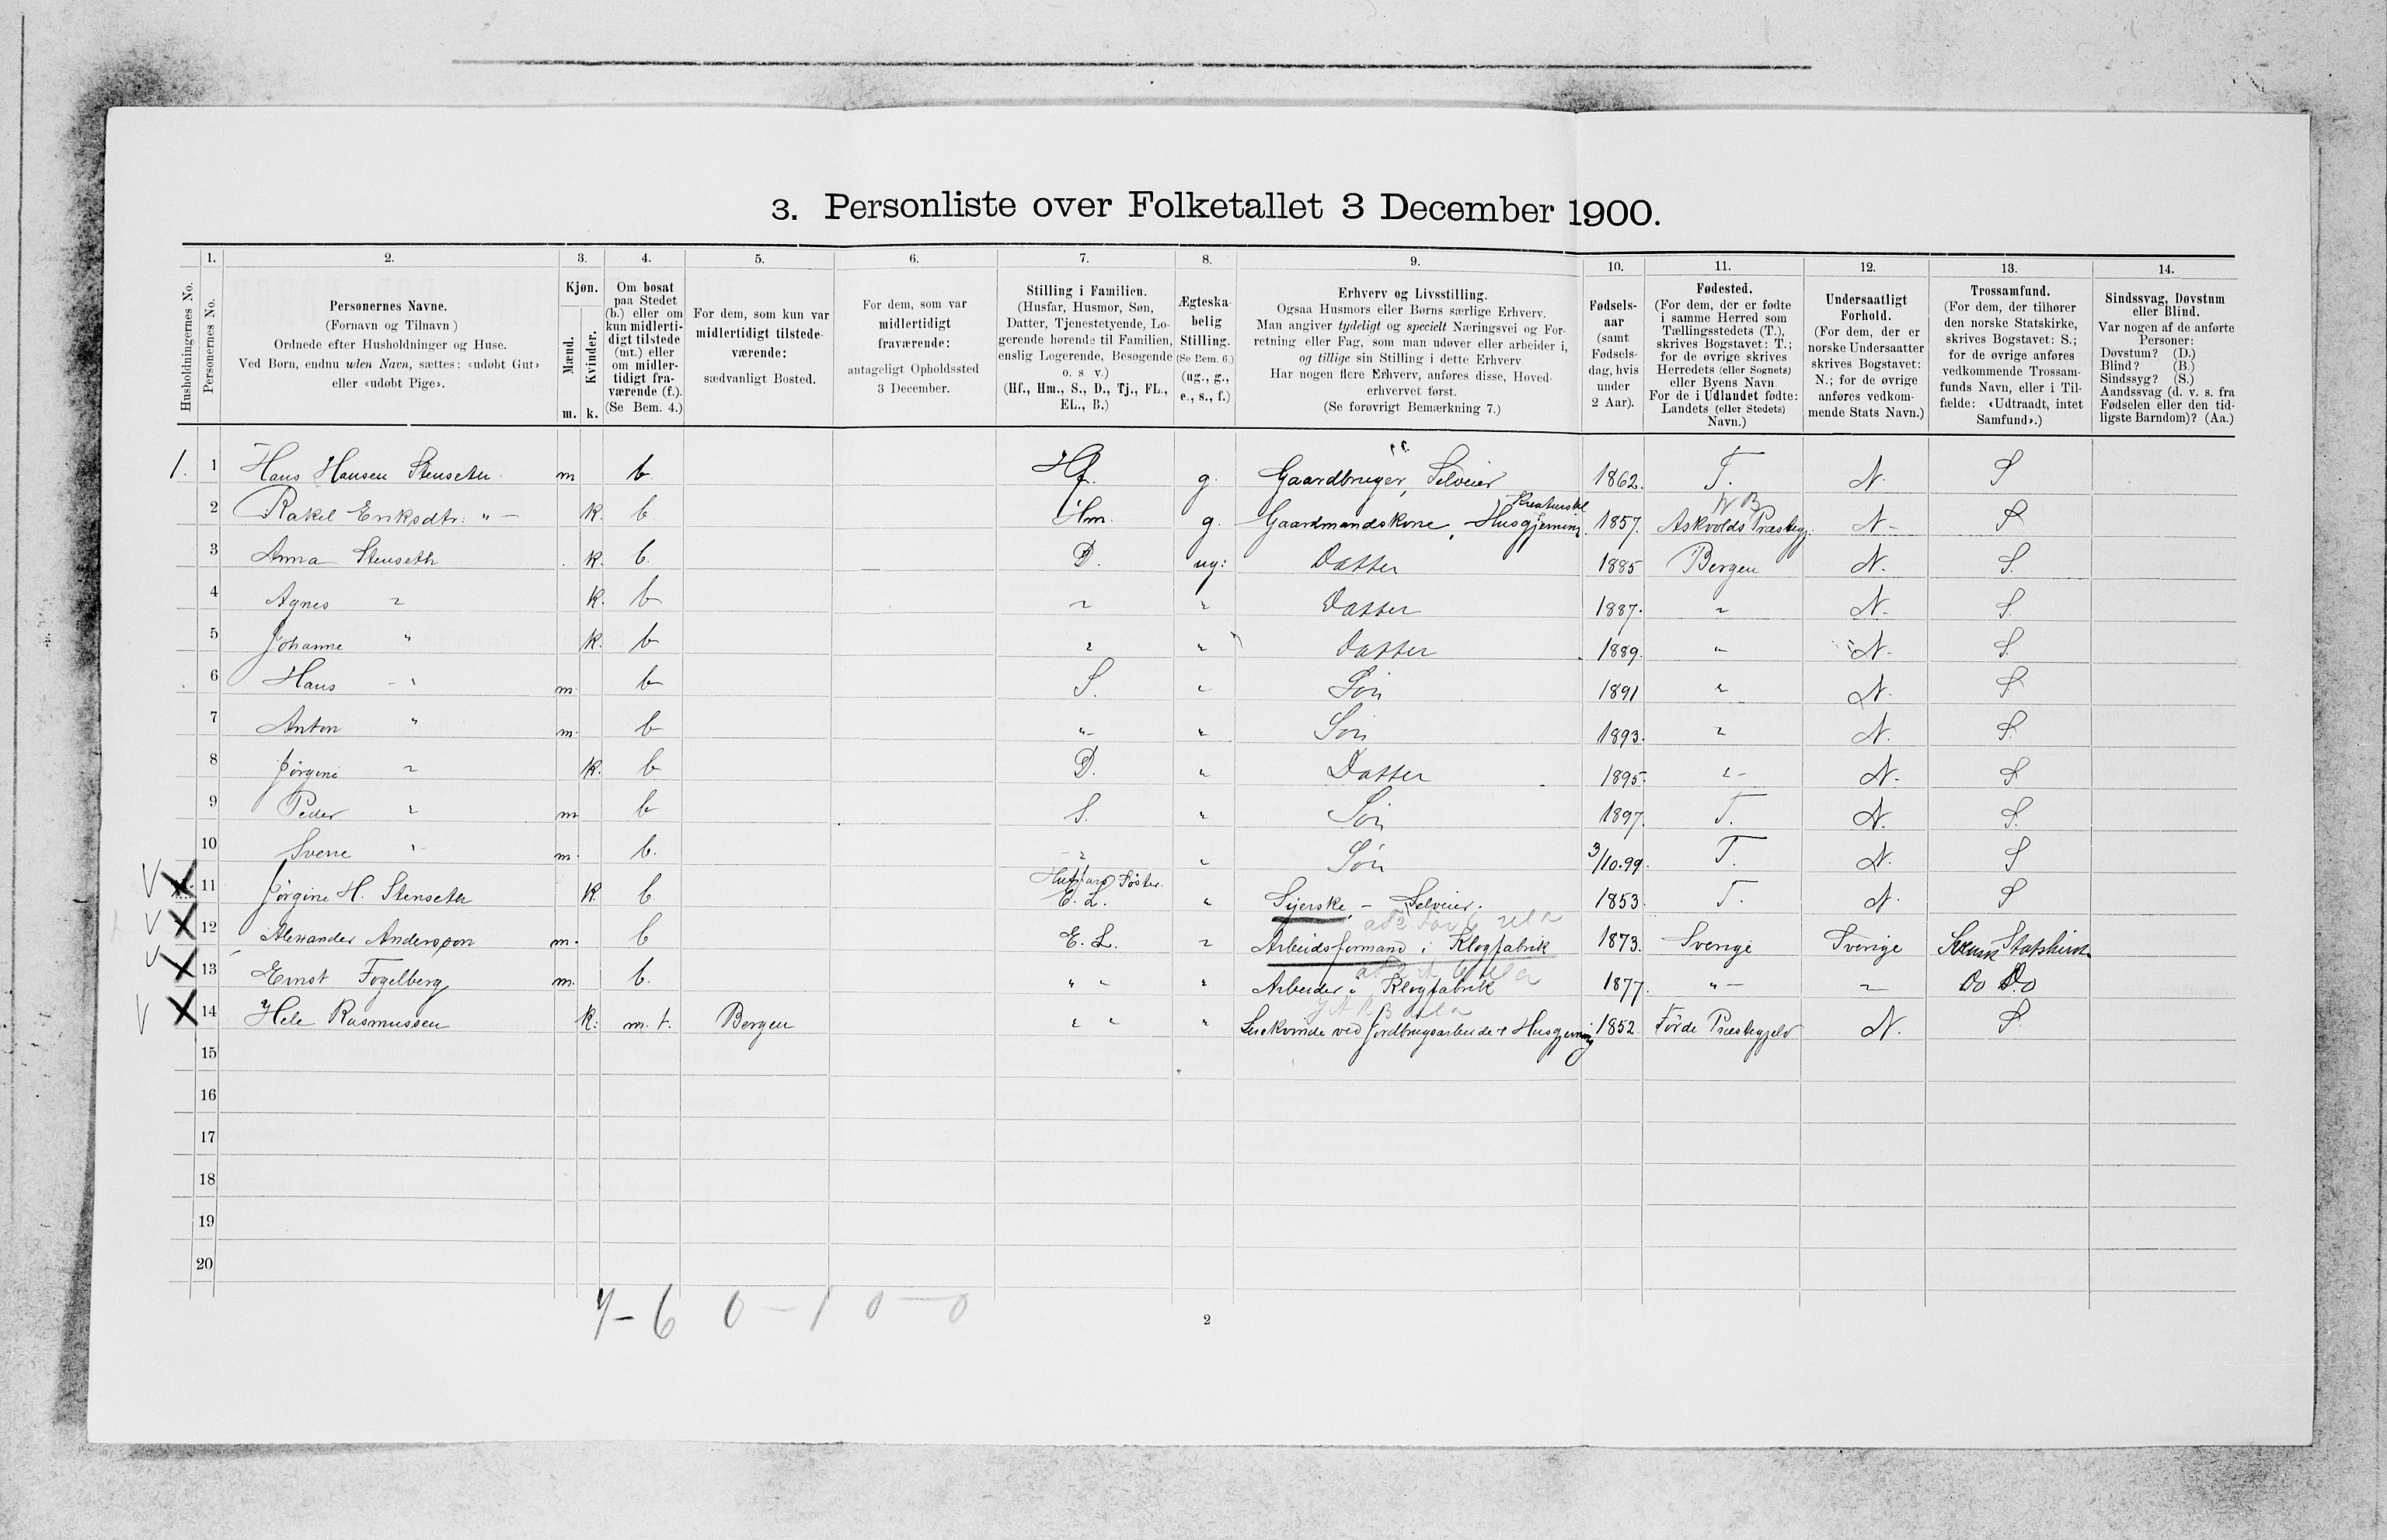 3. Personliste over Folketallet 3 December 1900.
1. 2. 3. 4. 5. 6. 7. 8. 9. 10. 11. 12. 13. 14.
Husholdningernes No.
Personernes No.
Personernes Navne.
(Fornavn og Tilnavn)
Ordnede efter Husholdninger og Huse.
Ved Børn, endnu uden Navn, sættes: «udøbt Gut»
eller «udøbt Pige».
Kjøn.
Mænd.
Kvinder.
m. k.
Om bosat
paa Stedet
(b.) eller om
kun midlerti-
digt tilstede
(mt.) eller
om midler-
tidigt fra-
værende (f.).
(Se Bem. 4.)
For dem, som kun var
midlertidigt tilstede-
værende:
sædvanligt Bosted.
For dem, som var
midlertidigt
fraværende:
antageligt Opholdssted
3 December.
Stilling i Familien.
(Husfar, Husmor, Søn,
Datter, Tjenestetyende, Lo-
gerende hørende til Familien,
enslig Logerende, Besøgende
o. s v.)
(Hf., Hm., S., D., Tj., FL.,
EL., B.)
Ægteska-
belig
Stilling.
(Se Bem. 6.)
(ug., g.,
e., s., f.)
Erhverv og Livsstilling.
Ogsaa Husmors eller Børns særlige Erhverv.
Man angiver tydeligt og specielt Næringsvei og For-
retning eller Fag, som man udøver eller arbeider i,
og tillige sin Stilling i dette Erhverv
Har nogen flere Erhverv, anføres disse, Hoved-
erhvervet først.
(Se forøvrigt Bemærkning 7.)
Fødsels-
aar
(samt
Fødsels-
dag, hvis
under
2 Aar).
Fødested.
(For dem, der er fødte
i samme Herred som
Tællingsstedets (T.),
skrives Bogstavet: T.;
for de øvrige skrives
Herredets (eller Sognets)
eller Byens Navn.
For de i Udlandet fødte:
Landets (eller Stedets)
Navn.)
Undersaatligt
Forhold.
(For dem, der er
norske Undersaatter
skrives Bogstavet:
N.; for de øvrige
anføres vedkom-
mende Stats Navn.)
Trossamfund.
(For dem, der tilhører
den norske Statskirke,
skrives Bogstavet: S.;
for de øvrige anføres
vedkommende Trossam-
funds Navn, eller i Til-
fælde: «Udtraadt, intet
Samfund».)
Sindssvag, Døvstum
eller Blind.
Var nogen af de anførte
Personer:
Døvstum? (D.)
Blind? (B.)
Sindssyg? (S.)
Aandssvag (d. v. s. fra
Fødselen eller den tid-
ligste Barndom)? (Aa.)
1. 1 Hans Hansen Stenseter m b. Hf. g. Gaardbruger, Selveier 1862. T. N. S
2 Rakel Eriksdtr: " — k. b Hm. g. Gaardmandskone, Kreaturstel Husgjerning 1857. Askvolds Præstegj. N- S
3 Anna Stenseth k. b. D. ug: Datter 1885 Bergen N. S.
4 Agnes " k. b " " Datter 1887. " N. S.
5 Johanne " k. b " " Datter 1889. " N. S.
6 Hans " m b S. " Søn 1891 " N. S
7 Anton " m. b " " Søn 1893. " N. S.
8 Jørgine " k. b D. " Datter 1895. " N. S
9 Peder " m b S. " Søn 1897. T. N. S.
10 Sverre " m. b. " " Søn 3/10.99. T. N. S
V X 11 Jørgine H. Stenseter k. b Husfars Søster. E. L. " Syerske, — Selveier. 1853. T. N. S
V X 12 Alexander Andersson m. b E. L. " Arbeidsformand i Klogfabrik 1873. Sverige Sverige Svensk Statskirk
V X 13 Ernst Fogelberg m. b. " " " Arbeider i Klogfabrik 1877. " — " Do Do
V X 14 Hele Rasmussen k: m. t. Bergen " " " ved Jordbrugsarbeide + Husgjerning 1852. Førde Præstegjeld N. S
15
16
17
18
19
20
7-6 0-1 0-0
2